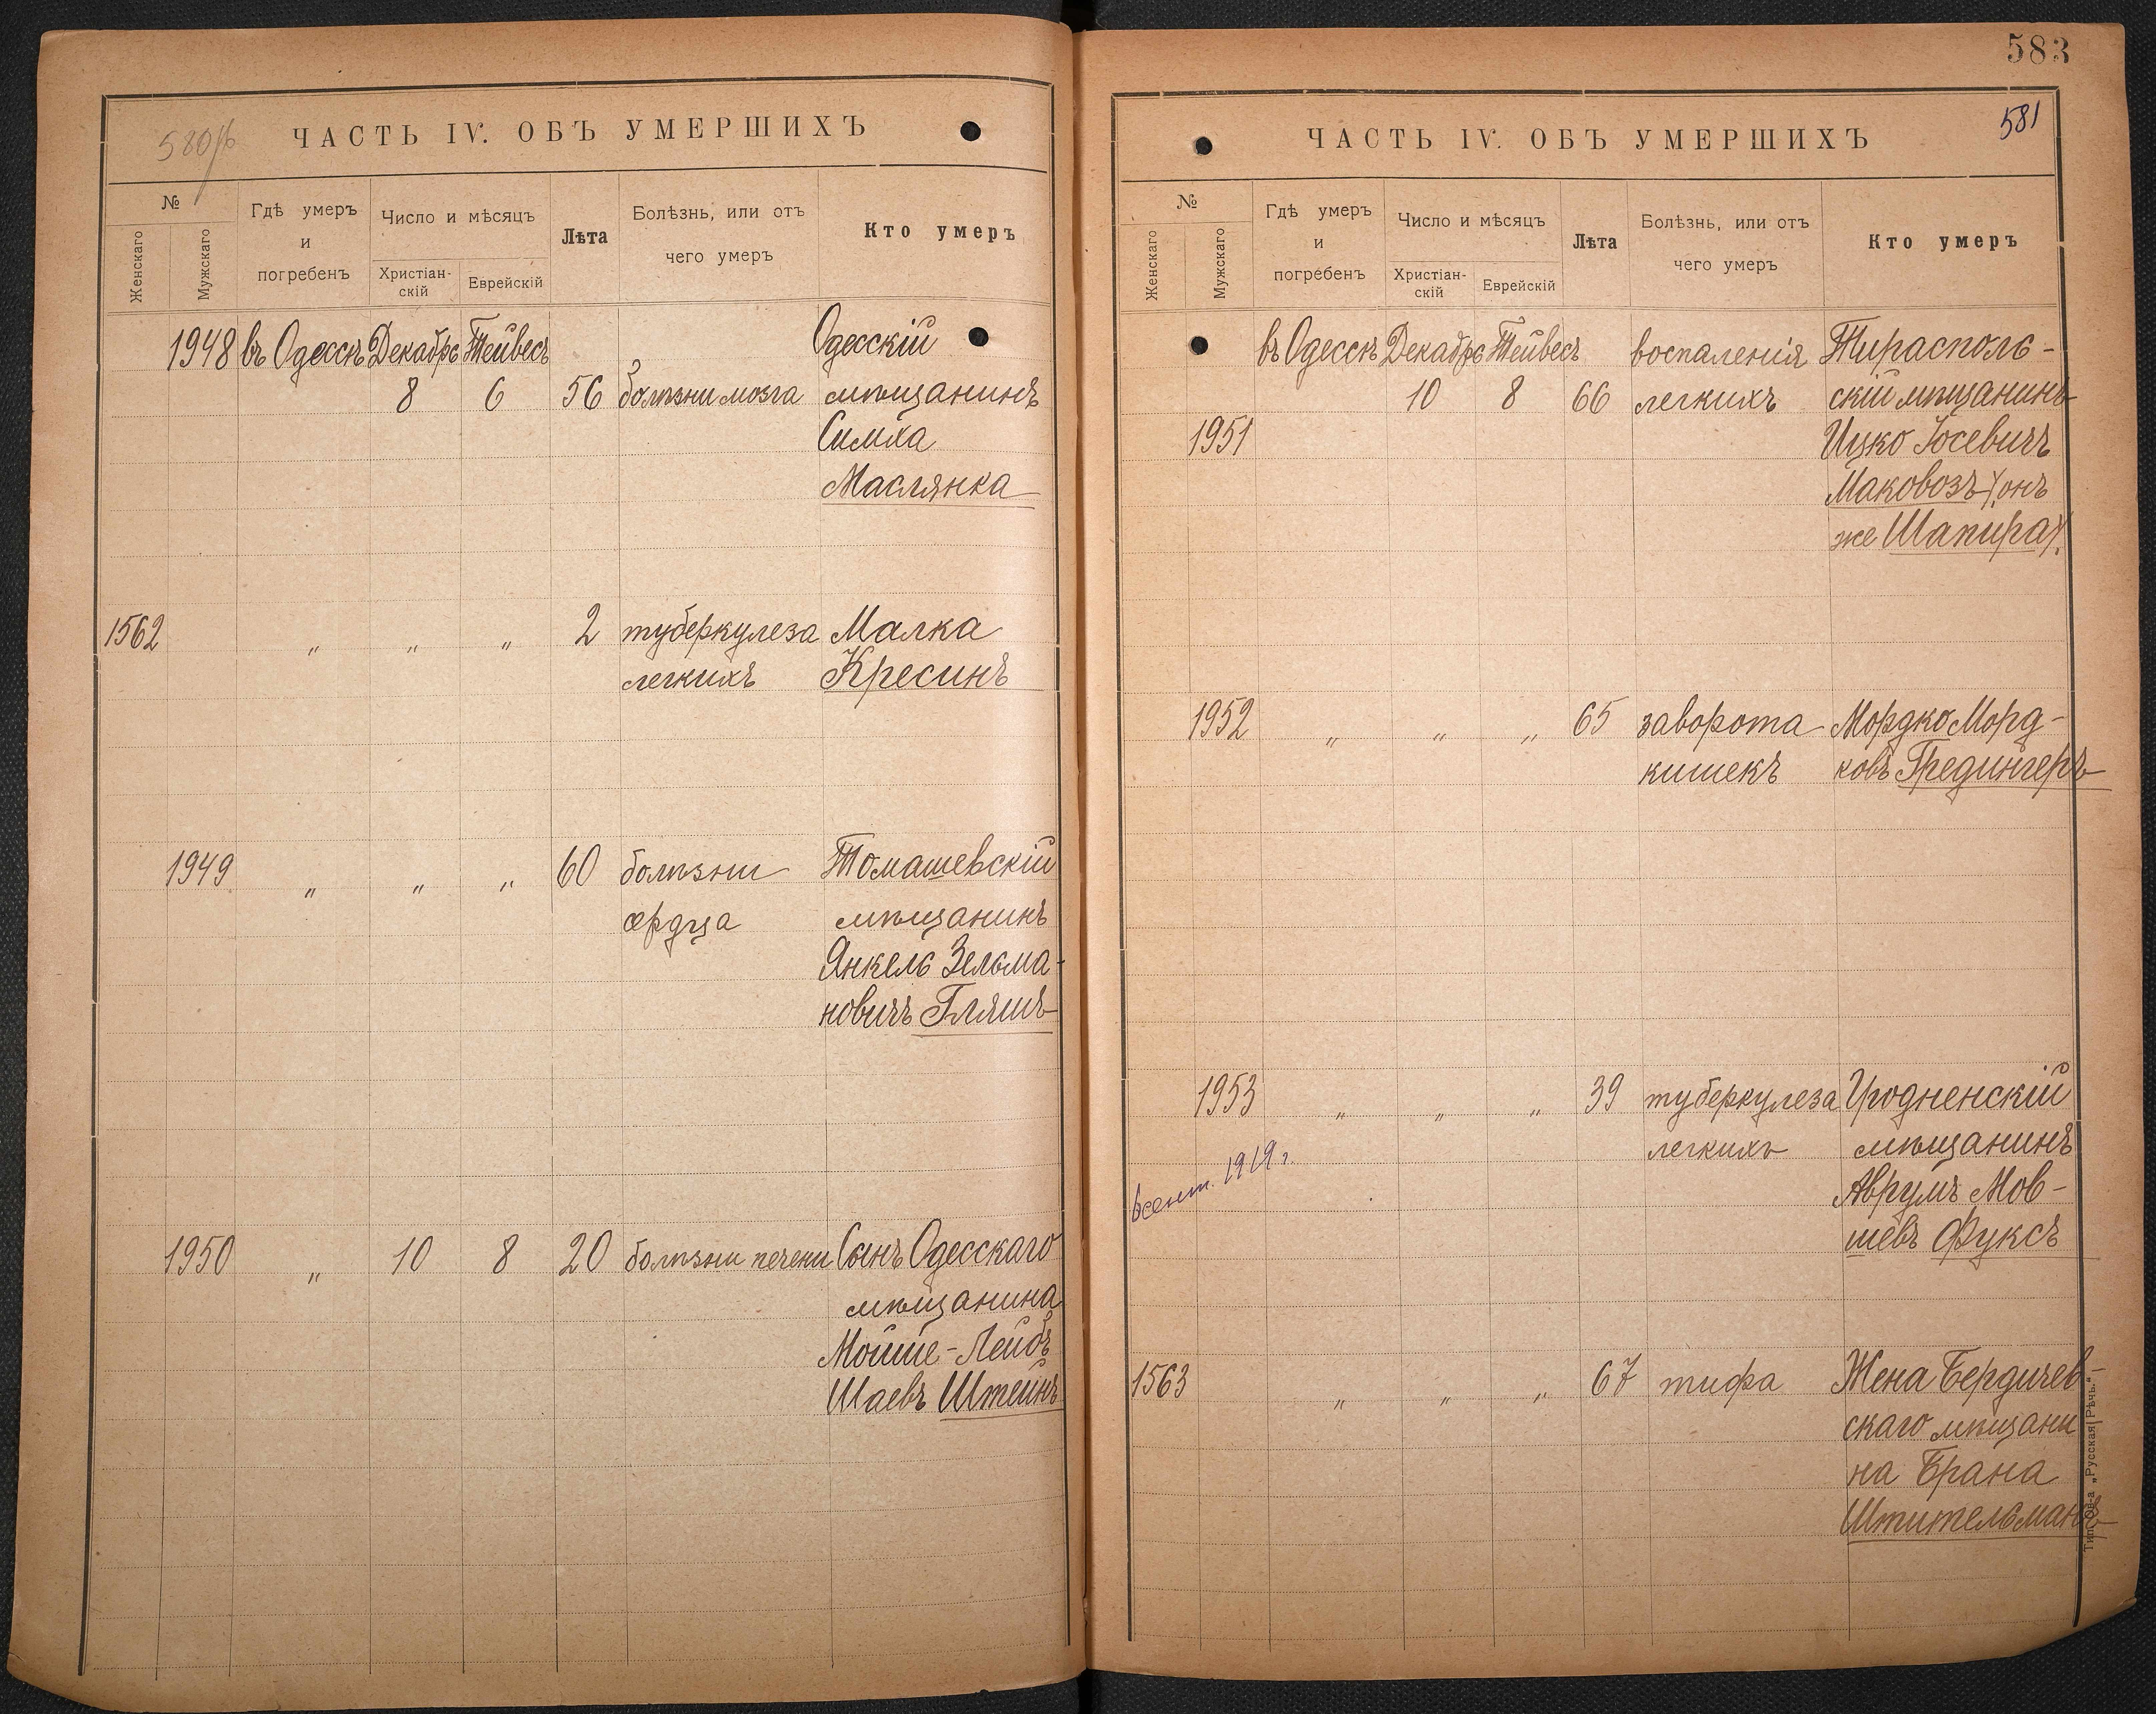 580 об
ЧАСТЬ IV. ОБЪ УМЕРШИХЪ
№
Женскаго
Мужскаго
Гдѣ умеръ и погребенъ
Число и мѣсяцъ
Христіан-скій
Еврейскій
Лѣта
Болѣзнь, или отъ чего умеръ
Кто умеръ
1948 въ Одессѣ Декабрь Тейвесъ Одесскій
8 6 56 болѣзни мозга мѣщанинъ
Симха
Маслянка
1562 „ „ „ 2 туберкулеза Малка
легкихъ Кресинъ
1949 „ „ „ 60 болѣзни Томашевскій
сердца мѣщанинъ
Янкель Зельма-
новичъ Гляшъ
1950 „ 10 8 20 болѣзни печени Сынъ Одесскаго
мѣщанина
Мойше-Лейбъ
Шаевъ Штейнъ
583
581
ЧАСТЬ IV. ОБЪ УМЕРШИХЪ
№
Женскаго
Мужскаго
Гдѣ умеръ и погребенъ
Число и мѣсяцъ
Христіан-скій
Еврейскій
Лѣта
Болѣзнь, или отъ чего умеръ
Кто умеръ
въ Одессѣ Декабрь Тейвесъ воспаленія Тирасполь-
10 8 66 легкихъ скій мѣщанинъ
1951 Ицко Іосевичъ
Маковозъ (онъ
же Шапира).
1952 „ „ „ 65 заворота Мордко Морд-
кишекъ ковъ Гредингеръ
1953 „ „ „ 39 туберкулеза Гродненскій
легкихъ мѣщанинъ
6 сент. 1919 г.
Аврумъ Мов-
шевъ Фуксъ
1563 „ „ „ 67 тифа Жена Бердичев-
скаго мѣщани
на Брана
Штительманъ
Тип. Об-а „Русская Рѣчь.“